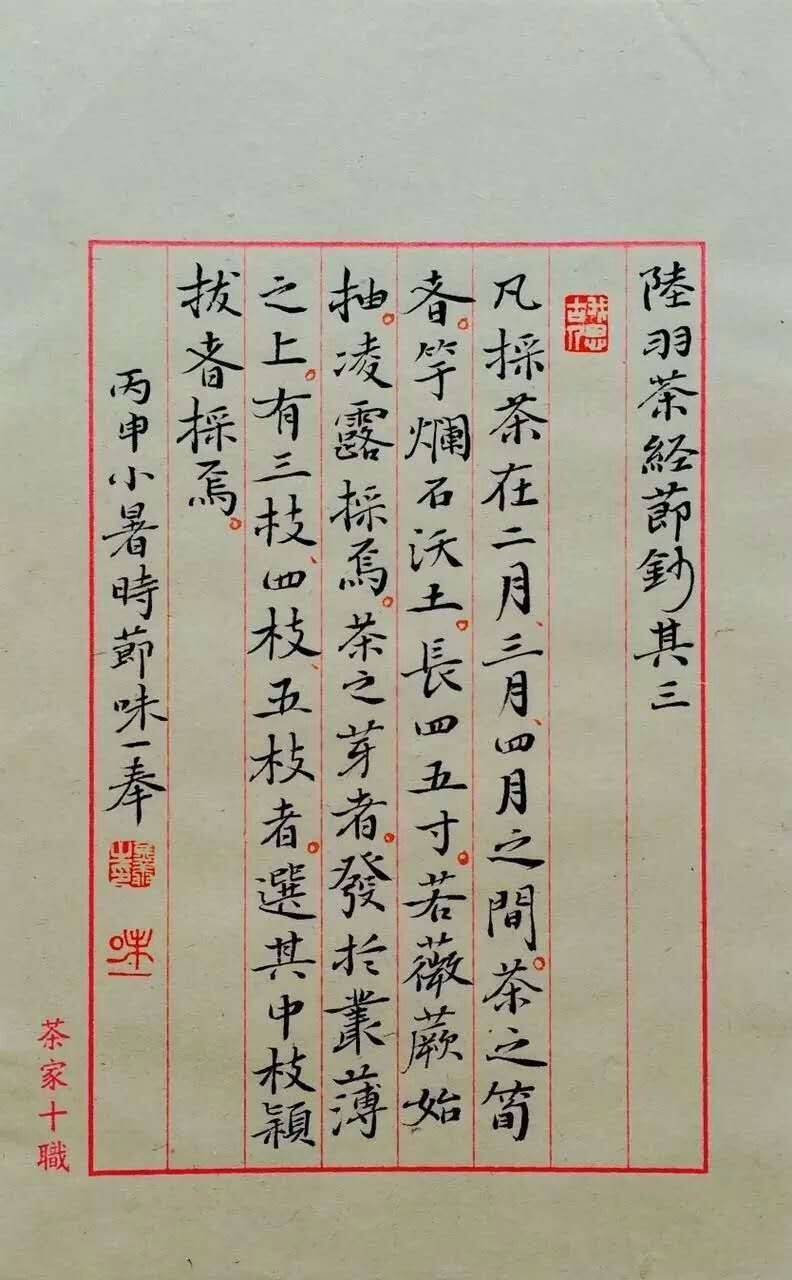 陸羽茶経節鈔其三
凡採茶在二月、三月、四月之間。茶之筍
者。竽爛石沃土。長四五寸。若薇蕨始
抽。凌露採焉。茶之芽者。發扵叢薄
之上。有三枝、四枝、五枝者。選其中枝穎
拔者採焉。
丙申小暑時節味一奉
味一
茶家十職